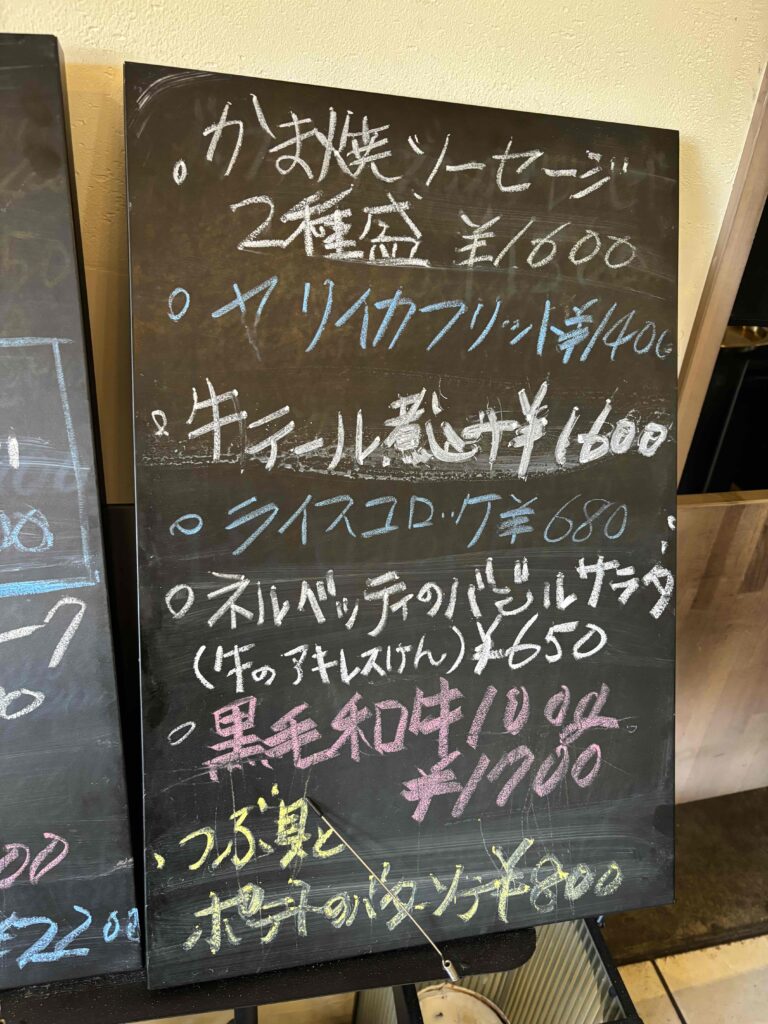 。かま焼ソーセージ
2種盛 ¥1600
。ヤリイカフリット¥1400
。牛テール煮込サ¥1600
。ライスコロッケ¥680
。ネルベッティのバジルサラダ
(牛のアキレスけん)¥650
。黒毛和牛100g
¥1700
、つぶ貝と
ポテトのバターソテ¥800
ーク
00
¥2200